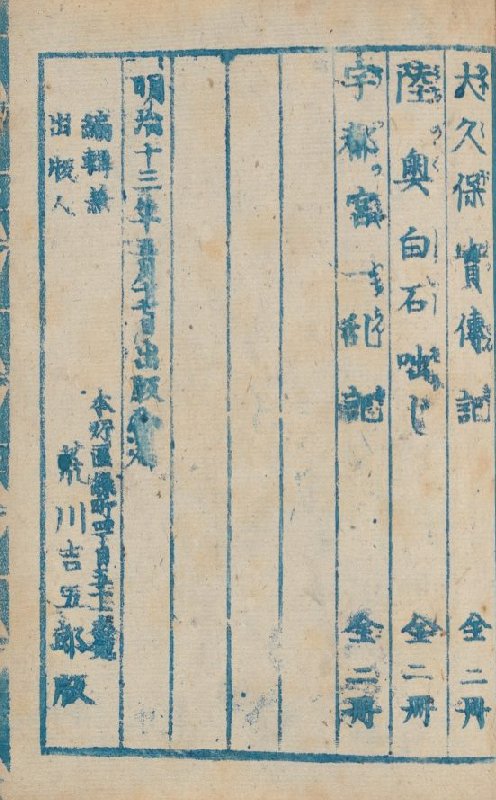 大久保實傳記 全二冊
陸奥白石咄し 全二冊
宇都宮 乱記 全二冊
明治十三年 出版
編輯兼
出版人
本所區緑町四丁目五十
荒川吉五郎版